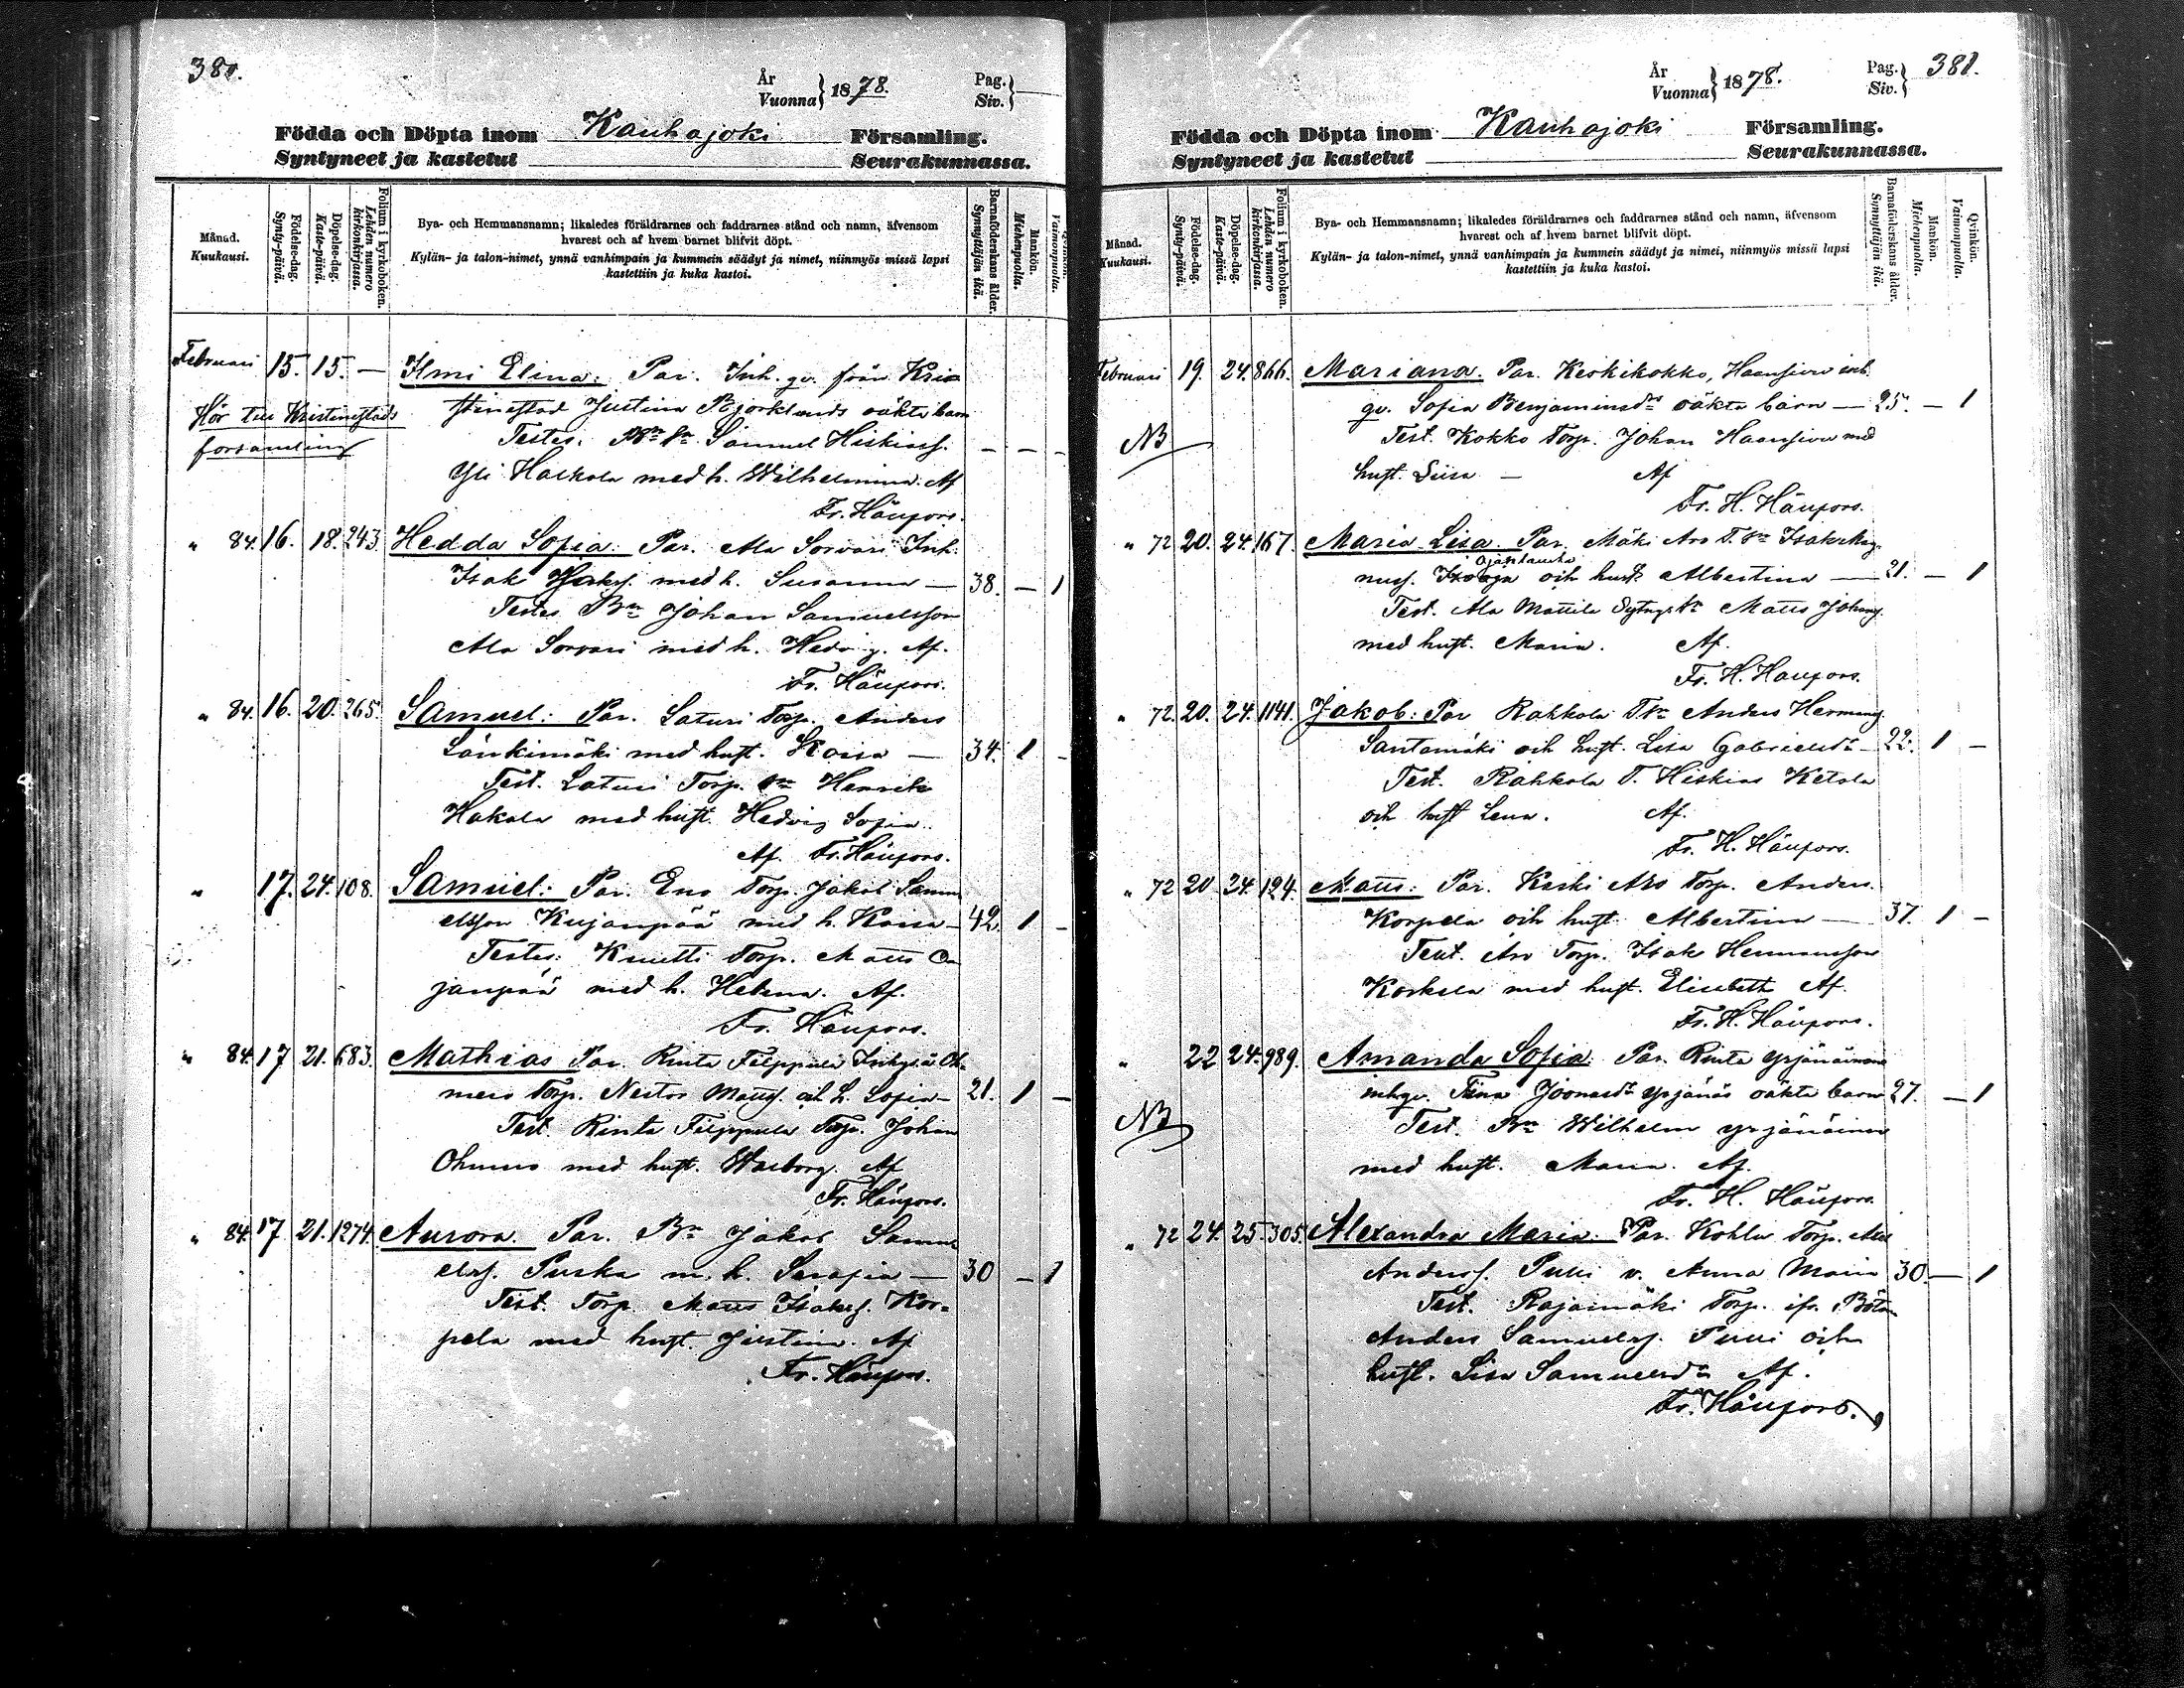 380.
År
Vuonna } 1878.
Pag.
Siv. }
Födda och Döpta inom Kauhajoki Församling.
Syntyneet ja kastetut Seurakunnassa.
Månad.
Kuukausi.
Födelse-dag.
Synty-päivä.
Döpelse-dag.
Kaste-päivä.
Folium i kyrkoboken.
Lehden numero kirkonkirjassa.
Bya- och Hemmansnamn; likaledes föräldrarnes och faddrarnes stånd och namn, äfvensom
hvarest och af hvem barnet blifvit döpt.
Kylän- ja talon-nimet, ynnä vanhimpain ja kummein säädyt ja nimet, niinmyös missä lapsi
kastettiin ja kuka kastoi.
Barnaföderskans ålder.
Synnyttäjän ikä.
Mankön.
Miehenpuolta.
Qvinkön.
Vaimonpuolta.
Februari 15. 15. — Ilmi Elina: Par. Inh. qv. från Kri=
Hör till Kristinestads
stinestad Justina Björklunds oäkta barn
församling
Testes. Bn Sn Samuel Hiskiass. — — —
Yli Halkola med h. Wilhelmina. Af
Fr. Häupors.
" 84. 16. 18. 243. Hedda Sofia: Par. Ala Sorvari Inh.
Isak med h. Susanna — 38. — 1
Testes Bn Johan Samuelsson
Ala Sorvari med h. Hedvig. Af.
Fr. Häupors.
" 84. 16. 20. 265. Samuel: Par. Laturi Torp. Anders
Länkimäki med hust. Kaisa — 34. 1 -
Test. Laturi Torp. Sn Henrik
Hakala med hust. Hedvig Sofia.
Af. Fr. Häupors.
" 17. 24. 108. Samuel: Par. Eno Torp. Jakob Samu
elsson Kujanpää med h. Kaisa — 42 1 -
Testes: Knutti Torp. Matts O=
janpää med h. Helena. Af.
Fr. Häupors.
" 84. 17 21. 683. Mathias Par. Rinta Filppula Inhys. å Oh=
mero Torp. Nestor Matts. och h. Sofia — 21. 1 —
Test. Rinta Filppula Torp. Johan
med hust. Walborg. Af
Fr. Häupors.
" 84. 17 21. 1274. Aurora. Par. Bn Jakob Samu
elss. Puska m. h. Serafia — 30 — 1
Test. Torp. Matts Isakss. Kor=
pela med hust. Justina. Af
Fr. Häupors.
År
Vuonna } 1878.
Pag.
Siv. } 381.
Födda och Döpta inom Kauhajoki Församling.
Syntyneet ja kastetut Seurakunnassa.
Månad.
Kuukausi.
Födelse-dag.
Synty-päivä.
Döpelse-dag.
Kaste-päivä.
Folium i kyrkoboken.
Lehden numero kirkonkirjassa.
Bya- och Hemmansnamn; likaledes föräldrarnes och faddrarnes stånd och namn, äfvensom
hvarest och af hvem barnet blifvit döpt.
Kylän- ja talon-nimet, ynnä vanhimpain ja kummein säädyt ja nimei, niinmyös missä lapsi
kastettiin ja kuka kastoi.
Barnaföderskans ålder.
Synnyttäjän ikä.
Mankön.
Miehenpuolta.
Qvinkön.
Vaimonpuolta.
Februari 19. 24. 866. Mariana. Par. Keskikokko, inh.
qv. Sofia Benjaminsdr oäkta barn — 25. — 1
NB
Test. Kokko Torp. Johan med
hust. Liisa — Af
Fr. H. Häupors.
" 72 20. 24. 167. Maria Lisa. Par. Mäki Aro T. Sn Isak Mag=
nuss. och hust. Albertina — 21. — 1
Test. Ala Mattila Sn Matts Johans.
med hust. Maria. Af.
Fr. H. Häupors.
" 72. 20. 24. 1141. Jakob: Par Rahkola T. Sn Anders Hermans.
Santamäki och hust. Lisa Gabrielsdr — 22. 1 —
Test. Rahkola T. Hiskias Ketola
och hust Lena. Af.
Fr. H. Häupors.
" 72 20 24. 124. Matts: Par. Keski Aro Torp. Anders
Korpela och hust. Albertina — 37. 1 —
Test. Aro Torp. Isak Hermansson
Koskela med hust. Elisabeth Af.
Fr. H. Häupors.
" 22 24. 989. Amanda Sofia Par. Rinta Yrjänäinen
inhqv. Tiina Joonasdr Yrjänäs oäkta barn 27. — 1
NB
Test. Bn Wilhelm Yrjänäinen
med hust. Maria. Af.
Fr. H. Häupors.
" 72 24. 25. 305. Alexandra Maria. Par. Kohlu Torp.
Anderss. Puui v. Anna Maria 30. — 1
Test. Rajamäki Torp. ifr.
Anders Samuelss. Puui och
hust. Lisa Samuelsdr Af.
Fr. Häupors.